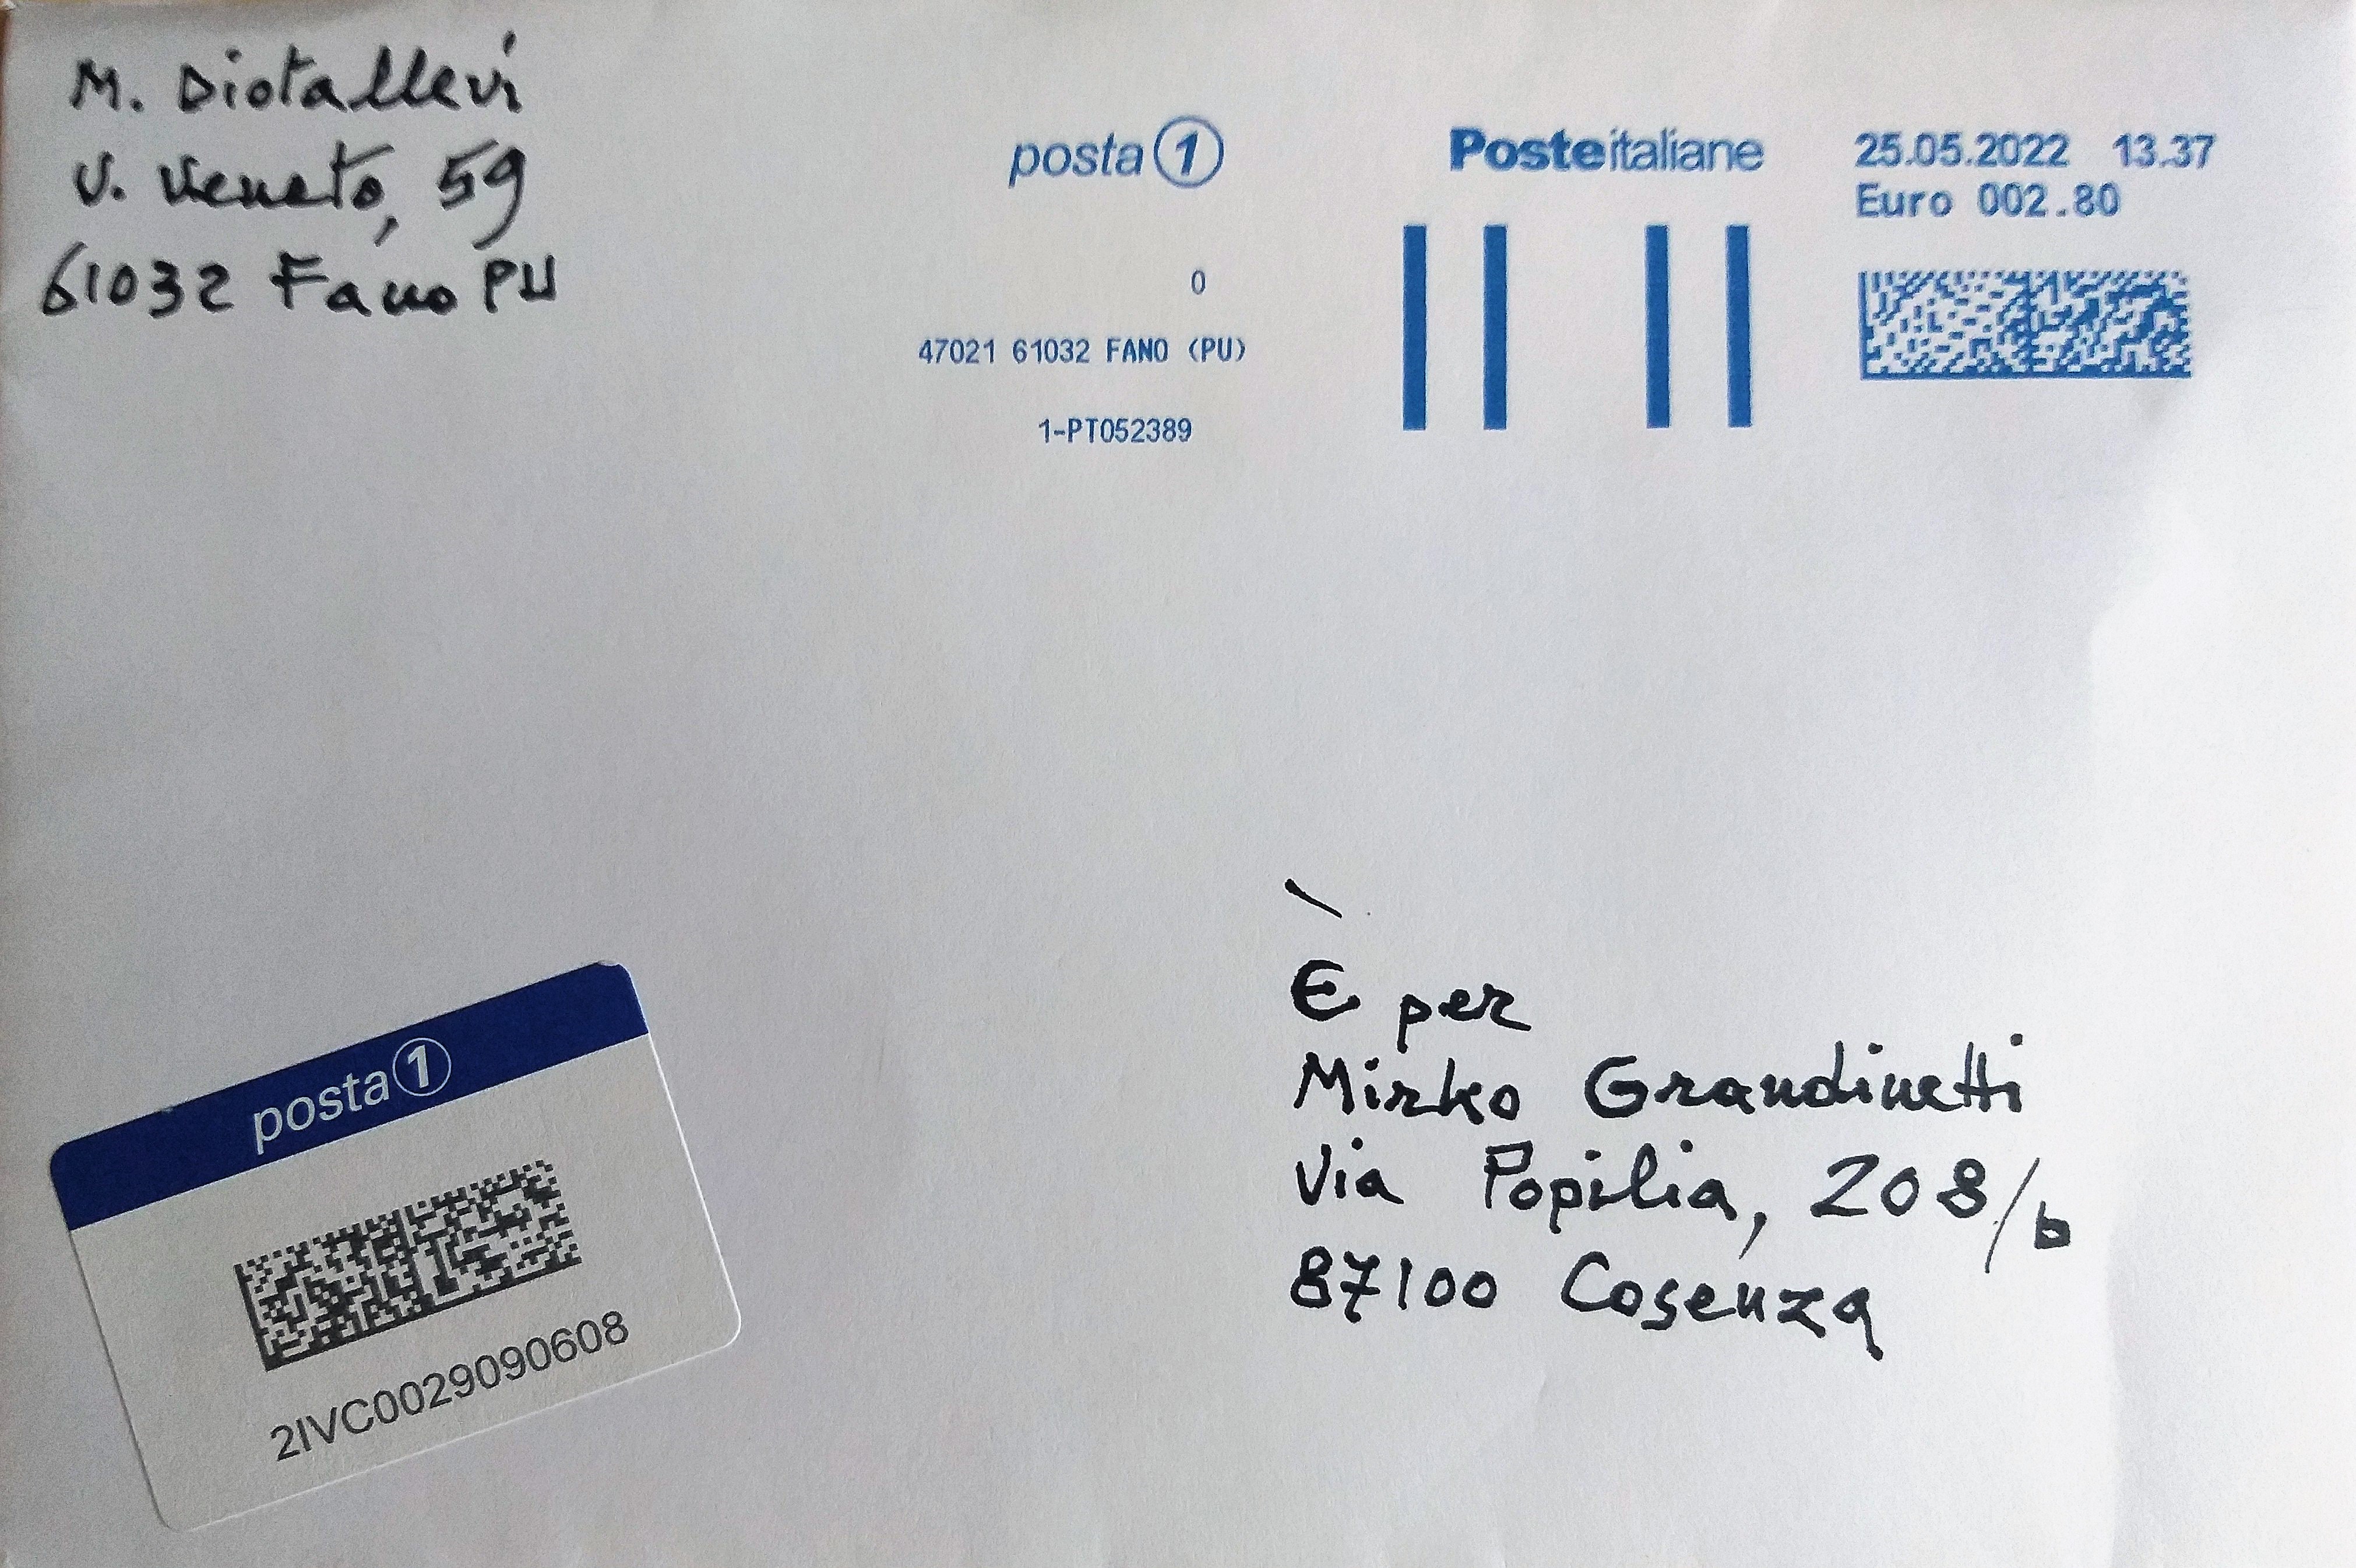 M. Diotallevi
V. Veneto, 59
61032 Fano PU
posta 1
0
47021 61032 FANO (PU)
1-PT052389
Posteitaliane
25.05.2022 13.37
Euro 002.80
È per
Mirko Grandinetti
Via Popilia, 208/b
87100 Cosenza
posta 1
2IVC0029090608